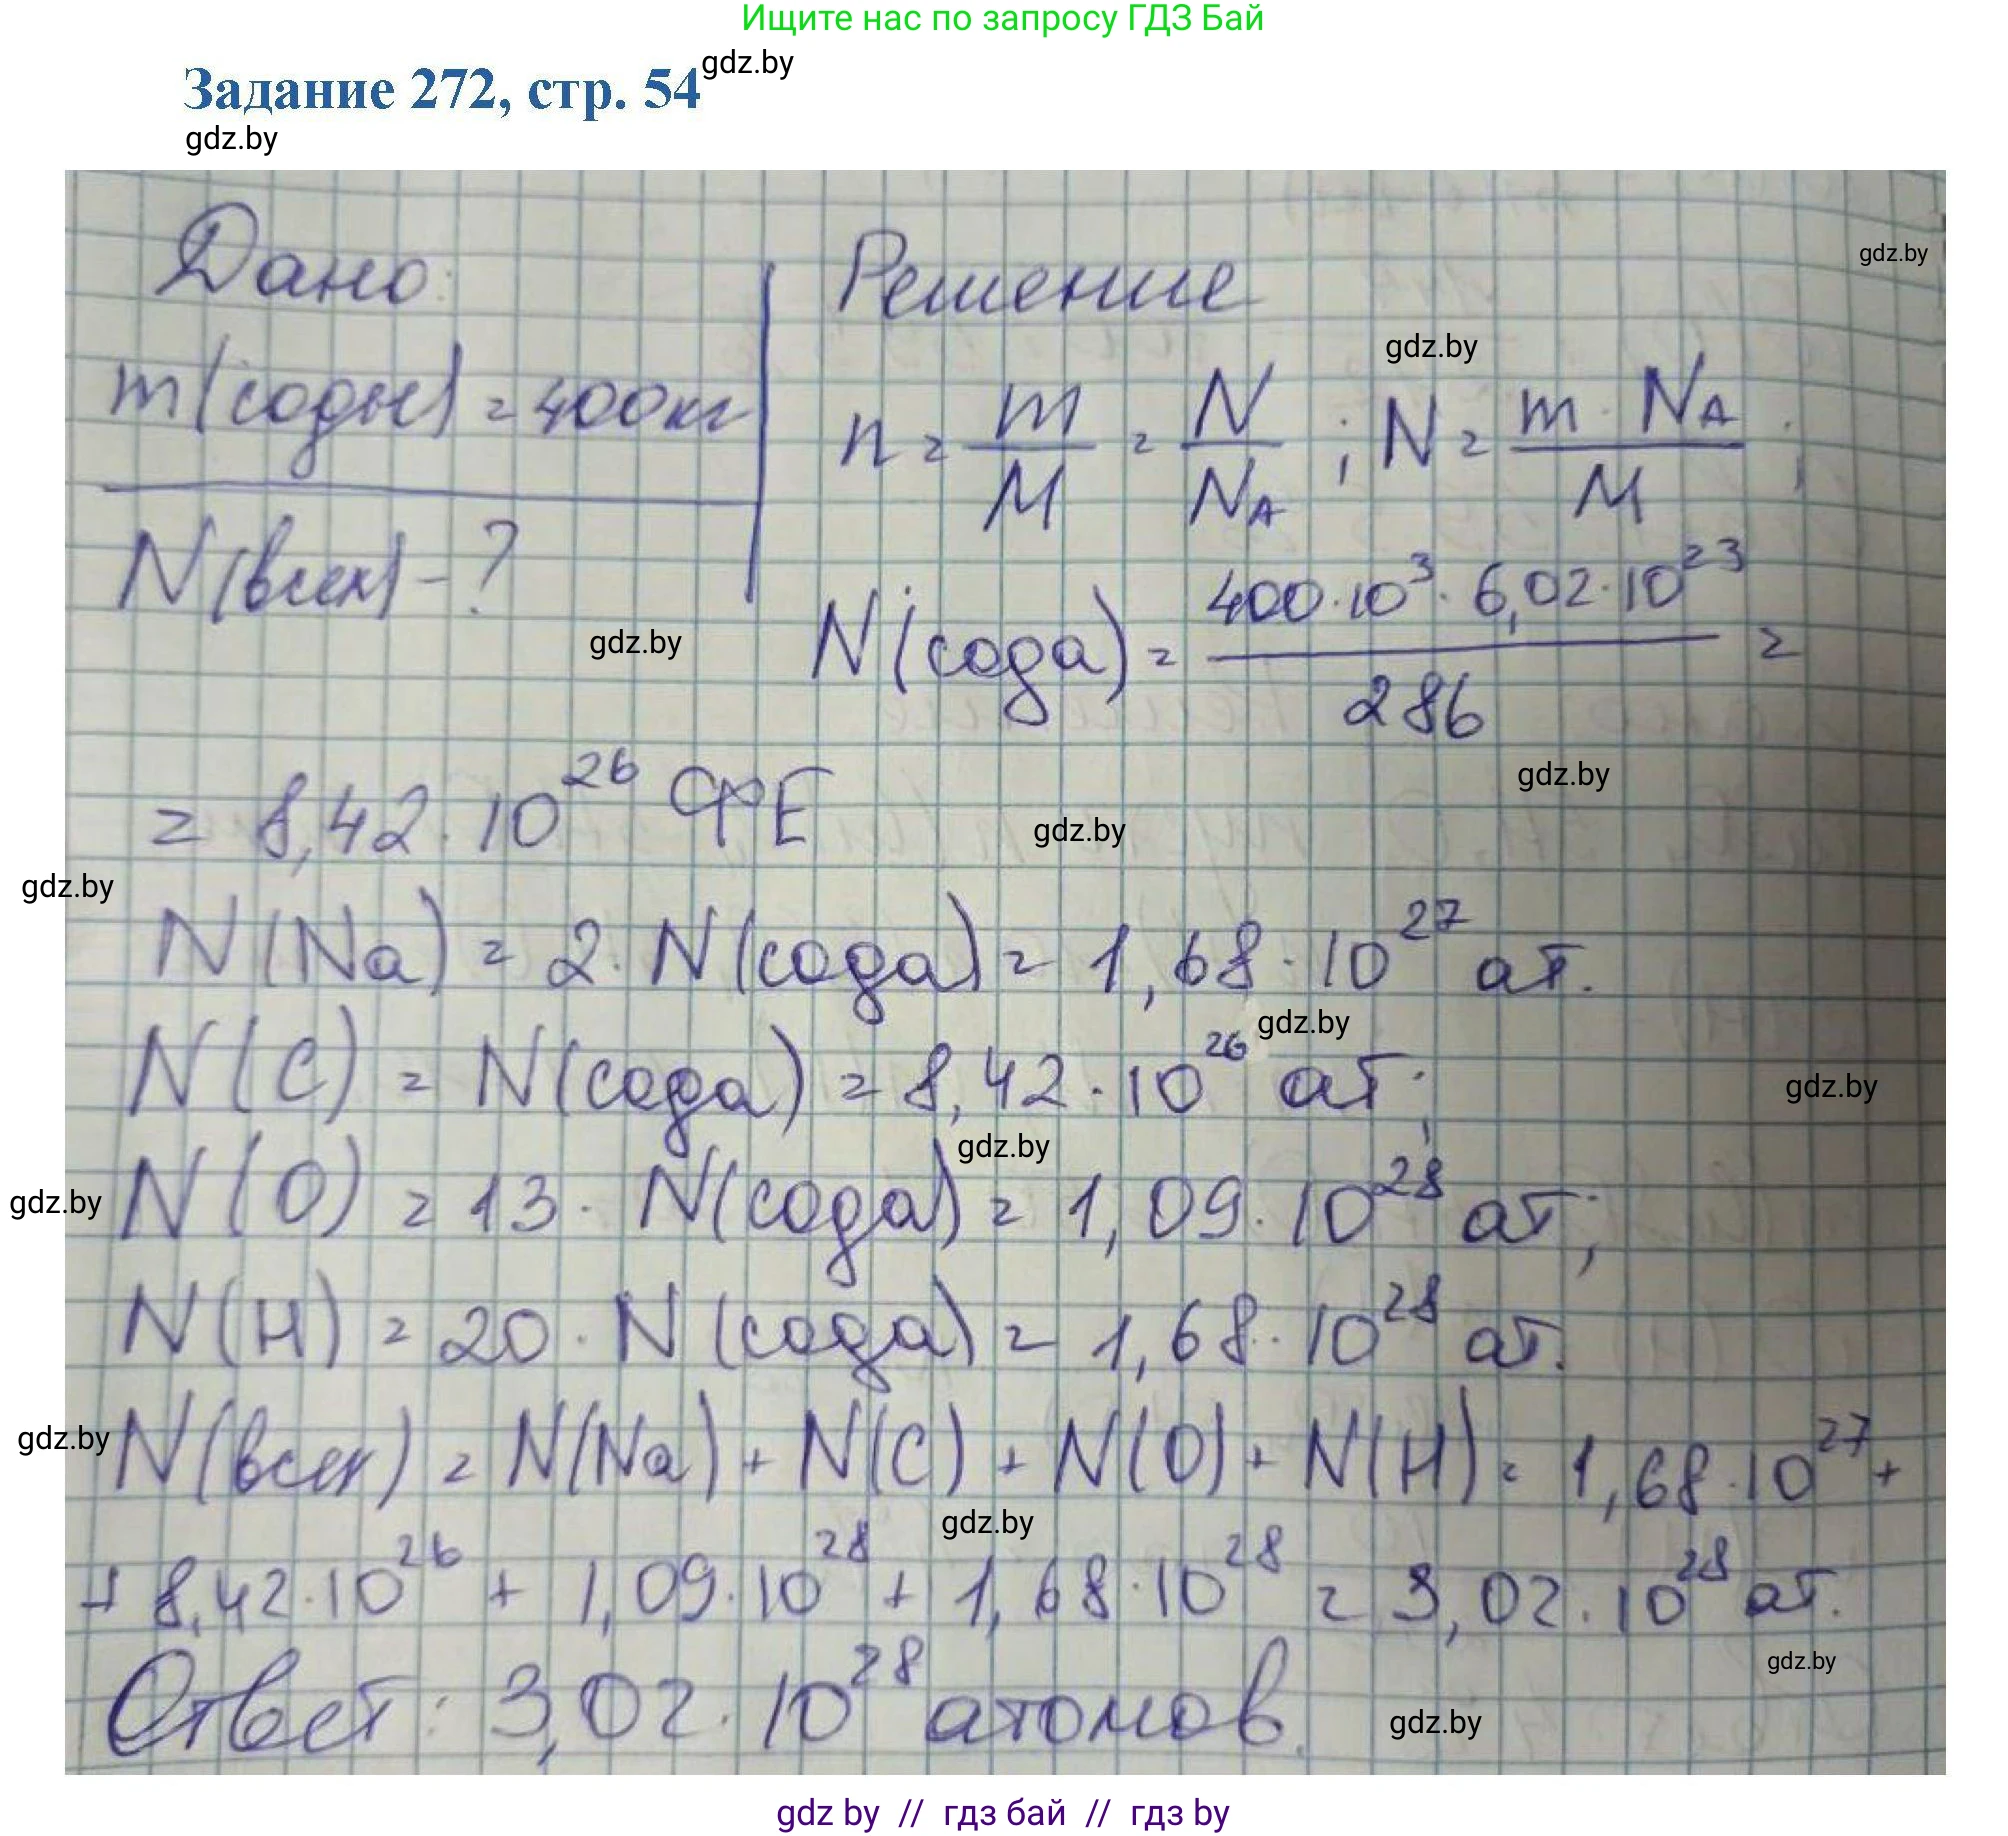 Ищите нас по запросу ГДЗ Бай
Задание 272, стр. 54
gdz.by
gdz.by
Дано: Решение
gdz.by
m(соды) = 400кг
gdz.by
n = m/M = N/N_A ; N = m · N_A / M ;
N(всех) - ?
gdz.by
N(сода) = 400·10³ · 6,02·10²³ / 286 =
gdz.by
= 8,42 · 10²⁶ ФЕ
gdz.by
gdz.by
N(Na) = 2 · N(сода) = 1,68 · 10²⁷ ат.
gdz.by
N(C) = N(сода) = 8,42 · 10²⁶ ат;
gdz.by
gdz.by
N(O) = 13 · N(сода) = 1,09 · 10²⁸ ат;
gdz.by
N(H) = 20 · N(сода) = 1,68 · 10²⁸ ат.
gdz.by
N(всех) = N(Na) + N(C) + N(O) + N(H) = 1,68 · 10²⁷ +
gdz.by
+ 8,42 · 10²⁶ + 1,09 · 10²⁸ + 1,68 · 10²⁸ = 3,02 · 10²⁸ ат.
gdz.by
Ответ: 3,02 · 10²⁸ атомов.
gdz.by
gdz by // гдз бай // гдз by